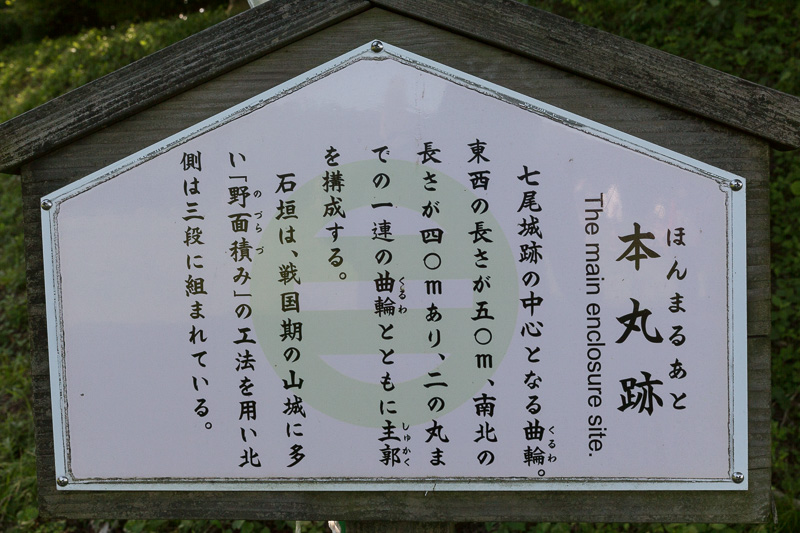 ほんまるあと
本丸跡
The main enclosure site.
七尾城跡の中心となる曲輪。
くるわ
東西の長さが五〇m、南北の
長さが四〇mあり、二の丸ま
での一連の曲輪とともに主郭
くるわ
しゅかく
を構成する。
石垣は、戦国期の山城に多
い「野面積み」の工法を用い北
のづらづ
側は三段に組まれている。